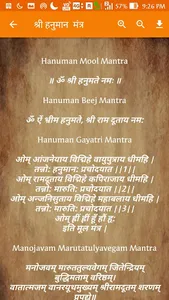 9:26 PM
श्री हनुमान मंत्र
Hanuman Mool Mantra
॥ ॐ श्री हनुमते नमः ॥
Hanuman Beej Mantra
ॐ ऐं श्रीम हनुमते, श्री राम दूताय नमः
Hanuman Gayatri Mantra
ओम् आंजनेयाय विद्मिहे वायुपुत्राय धीमहि |
तन्नो: हनुमान: प्रचोदयात ||1||
ओम् रामदूताय विद्मिहे कपिराजाय धीमहि |
तन्नो: मारुति: प्रचोदयात ||2||
ओम् अन्जनिसुताय विद्मिहे महाबलाय धीमहि |
तन्नो: मारुति: प्रचोदयात ||3||
ओम् ह्रीं ह्रीं हूँ हौं हृ:
Manojavam Marutatulyavegam Mantra
मनोजवम् मारुततुल्यवेगम् जितेन्द्रियम्
बुद्धिमताम् वरिष्ठम्
वातात्मजम् वानरयूथमुख्यम् श्रीरामदूतम् शरणम्
प्रपद्ये॥